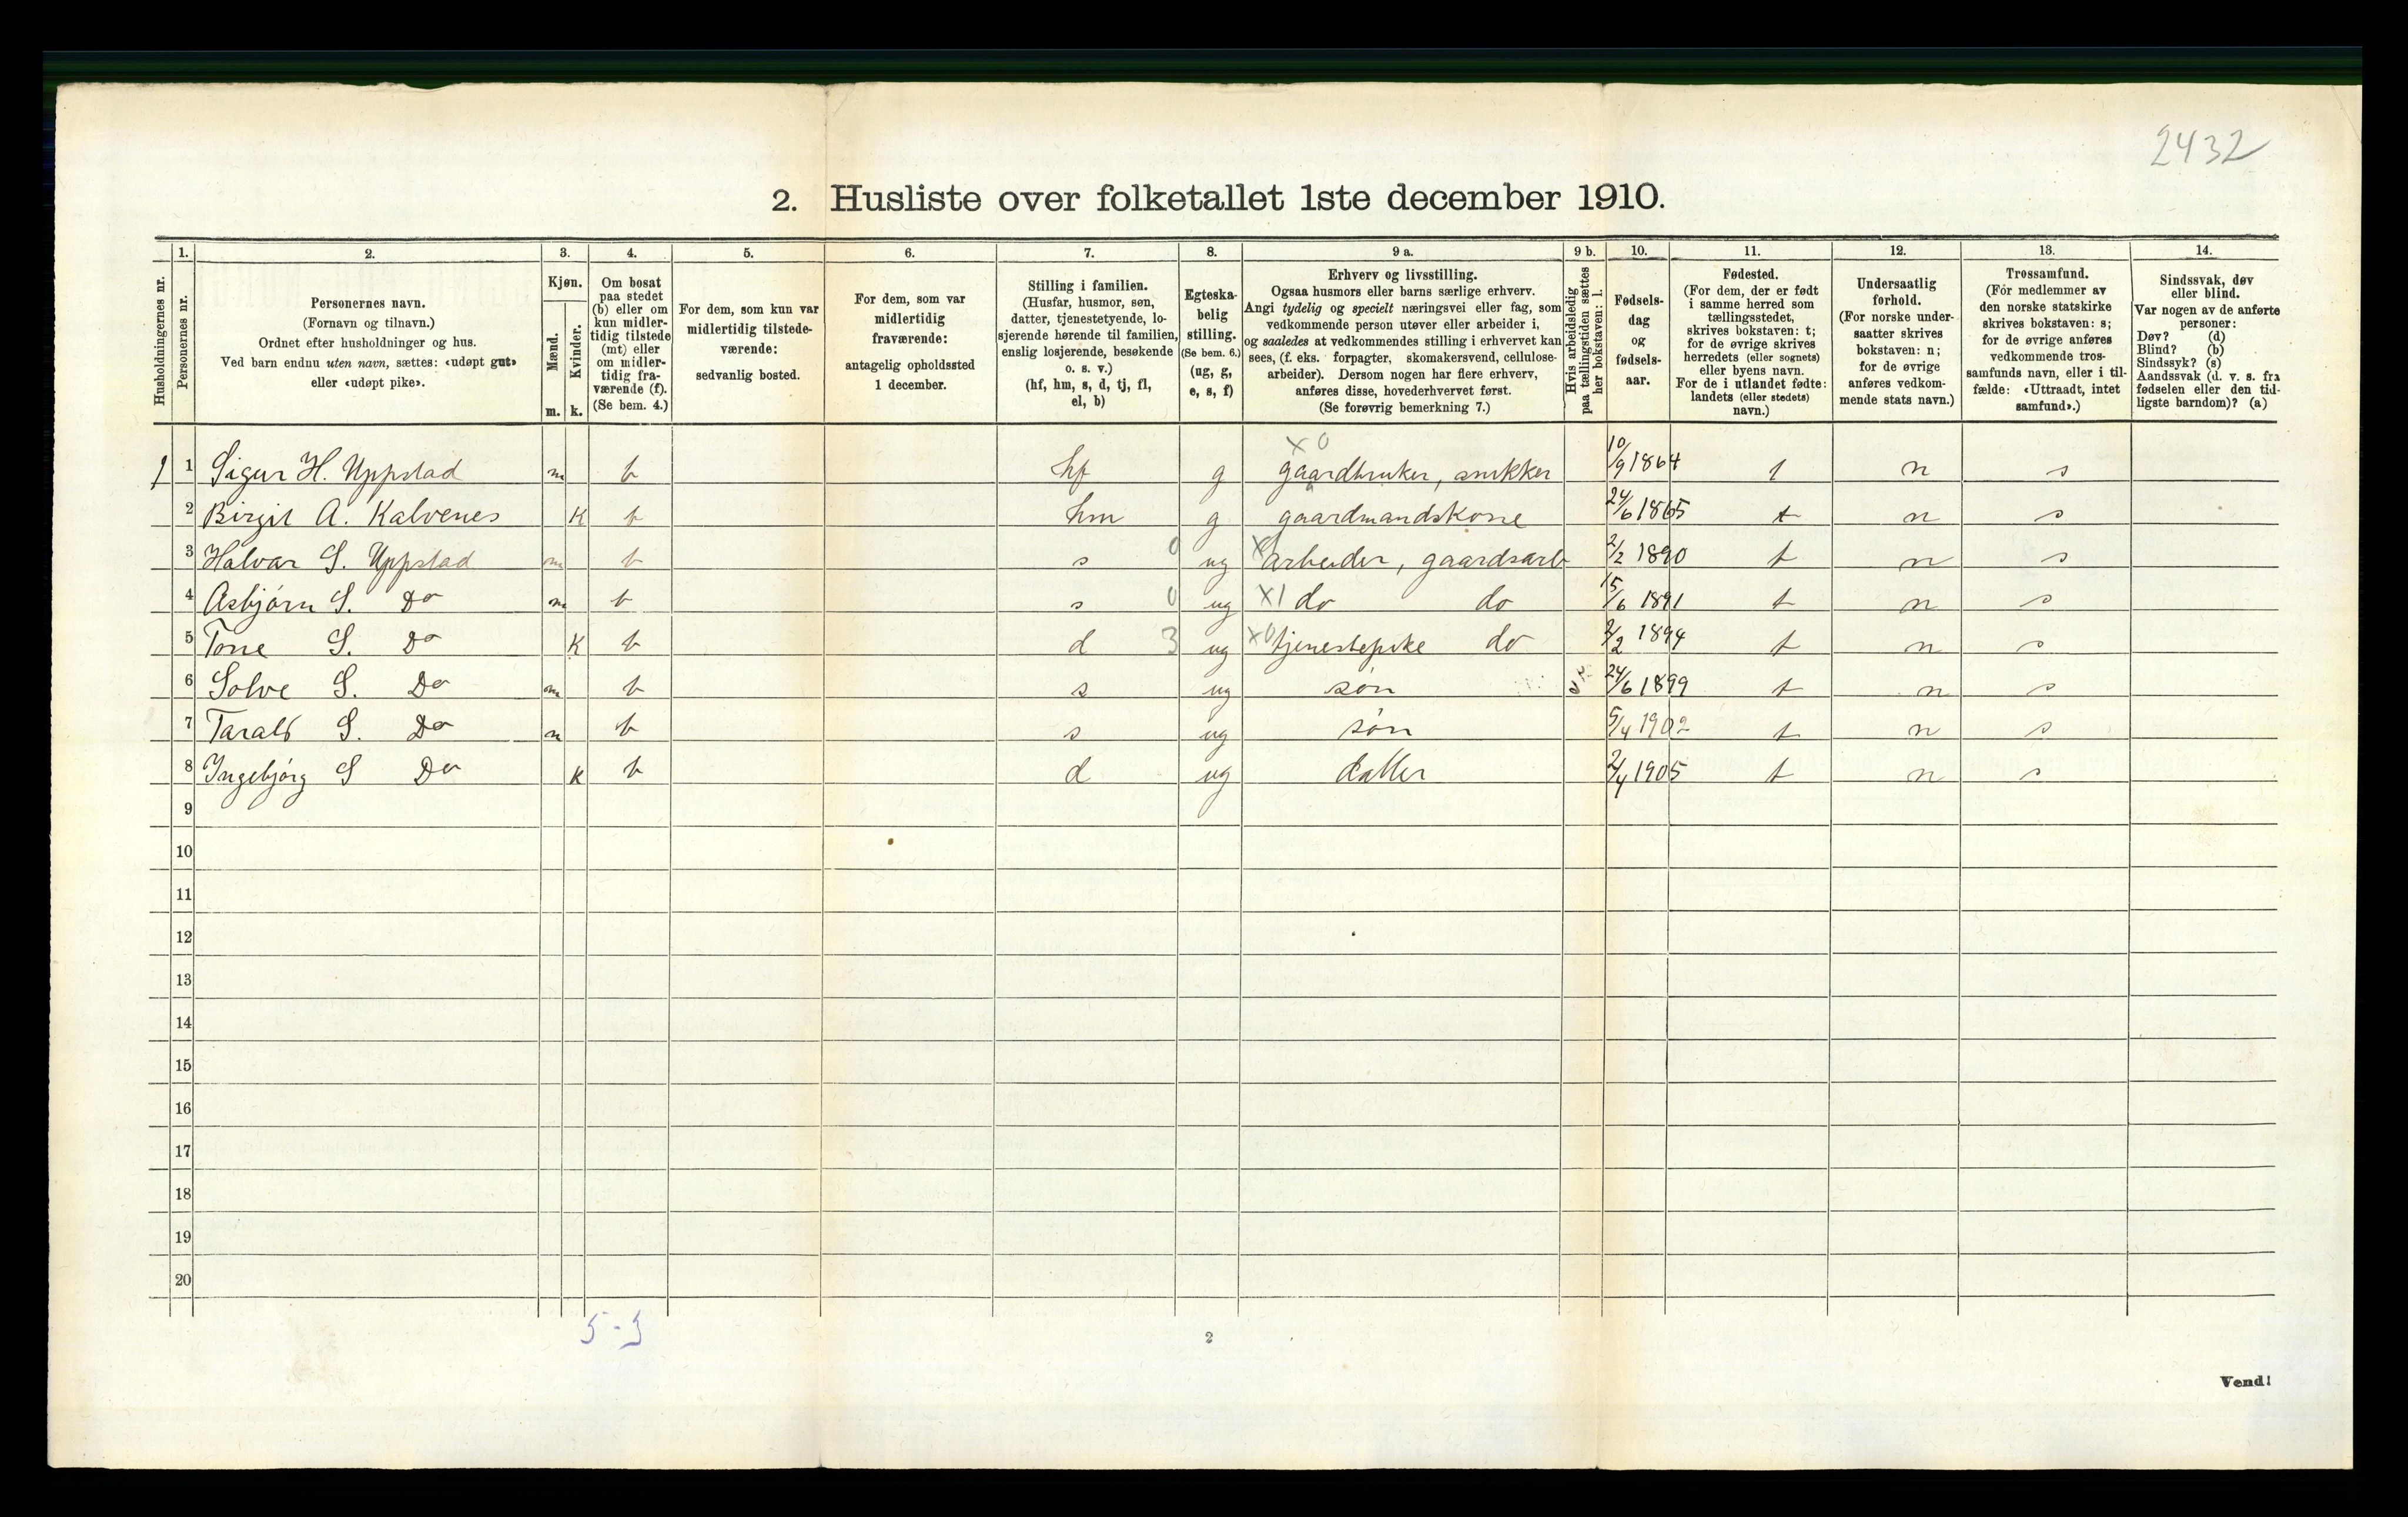 2432
2. Husliste over folketallet 1ste december 1910.
Husholdningernes nr.
1.
Personernes nr.
2.
Personernes navn.
(Fornavn og tilnavn.)
Ordnet efter husholdninger og hus.
Ved barn endnu uten navn, sættes: «udøpt gut»
eller «udøpt pike».
3.
Kjøn.
Mænd.
Kvinder.
m. k.
4.
Om bosat
paa stedet
(b) eller om
kun midler-
tidig tilstede
(mt) eller
om midler-
tidig fra-
værende (f).
(Se bem. 4.)
5.
For dem, som kun var
midlertidig tilstede-
værende:
sedvanlig bosted.
6.
For dem, som var
midlertidig
fraværende:
antagelig opholdssted
1 december.
7.
Stilling i familien.
(Husfar, husmor, søn,
datter, tjenestetyende, lo-
sjerende hørende til familien,
enslig losjerende, besøkende
o. s. v.)
(hf, hm, s, d, tj, fl,
el, b)
8.
Egteska-
belig
stilling.
(Se bem. 6.)
(ug, g,
e, s, f)
9 a.
Erhverv og livsstilling.
Ogsaa husmors eller barns særlige erhverv.
Angi tydelig og specielt næringsvei eller fag, som
vedkommende person utøver eller arbeider i,
og saaledes at vedkommendes stilling i erhvervet kan
sees, (f. eks. forpagter, skomakersvend, cellulose-
arbeider). Dersom nogen har flere erhverv,
anføres disse, hovederhvervet først.
(Se forøvrig bemerkning 7.)
9 b.
Hvis arbeidsledig
paa tællingstiden sættes
her bokstaven: l.
10.
Fødsels-
dag
og
fødsels-
aar.
11.
Fødested.
(For dem, der er født
i samme herred som
tællingsstedet,
skrives bokstaven: t;
for de øvrige skrives
herredets (eller sognets)
eller byens navn.
For de i utlandet fødte:
landets (eller stedets)
navn.)
12.
Undersaatlig
forhold.
(For norske under-
saatter skrives
bokstaven: n;
for de øvrige
anføres vedkom-
mende stats navn.)
13.
Trossamfund.
(For medlemmer av
den norske statskirke
skrives bokstaven: s;
for de øvrige anføres
vedkommende tros-
samfunds navn, eller i til-
fælde: «Uttraadt, intet
samfund».)
14.
Sindssvak, døv
eller blind.
Var nogen av de anførte
personer:
Døv? (d)
Blind? (b)
Sindssyk? (s)
Aandssvak (d. v. s. fra
fødselen eller den tid-
ligste barndom)? (a)
x 0
1 1 Sigur H. Uppstad m b hf g gaardbruker, snikker 10/9 1864 t n s
2 Birgit A. Kalvenes K b hm g gaardmandskone 24/6 1865 t n s
3 Halvar S. Uppstad m b s 0 ug x arbeider, gaardsarb 2/2 1890 t n s
4 Asbjørn S. Do m b s 0 ug x1 do do 15/6 1891 t n s
5 Tone S. Do K b d 3 ug x0 tjenestepike do 2/2 1894 t n s
6 Solve S. Do m b s ug søn 24/6 1899 t n s
7 Tarald S. Do m b s ug søn 5/4 1902 t n s
8 Ingebjørg S Do K b d ug datter 2/4 1905 t n s
9
10
11
12
13
14
15
16
17
18
19
20
5-3
2
Vend!